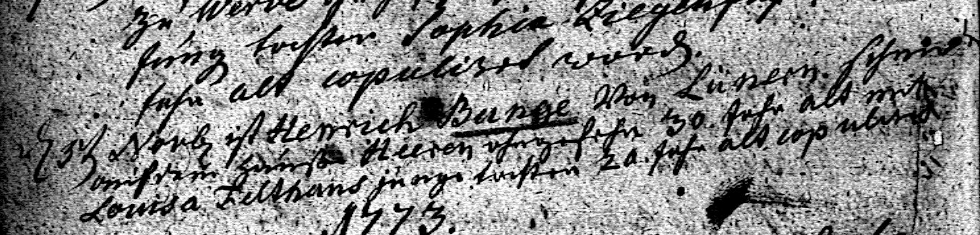 zu Werve
jung tochter Sophia Ziegen
Jahr alt copuliret word.
d 15t Novb ist Henrich Bunge Von Lünern
auf dem Hause Heeren ohngefehr 30. Jahr alt mit
Louisa Felthaus junge tochter 20. Jahr alt copuliret
1773.